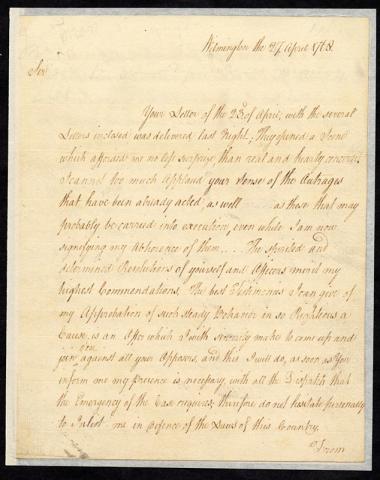 Wilmington the 27 April 1768.
Sir
Your Letter of the 23d of April, with the several
Letters inclosed was delivered last Night, They opened a Scene
which afforded me no less surprize, than real and hearty concern.
I cannot too much Applaud your Sense of the Outrages
that have been already acted, as well as those that may
probably be carried into execution, even while I am now
signifying my Abhorence of them . . . The spirited and
determined Resolutions of yourself and Officers merit my
highest Commendations, The best Testimonies I can give of
my Approbation of such steady Behavior in so Righteous a
Cause, is an Offer which I with sincerity make to come up and
join you against all your Opposers, and this I will do, as soon as You
inform me my Presence is necessary, with all the Dispatch that
the Emergency of the Case requires; therefore do not hesitate personally
to Inlist me in Defence of the Laws of this Country.
From